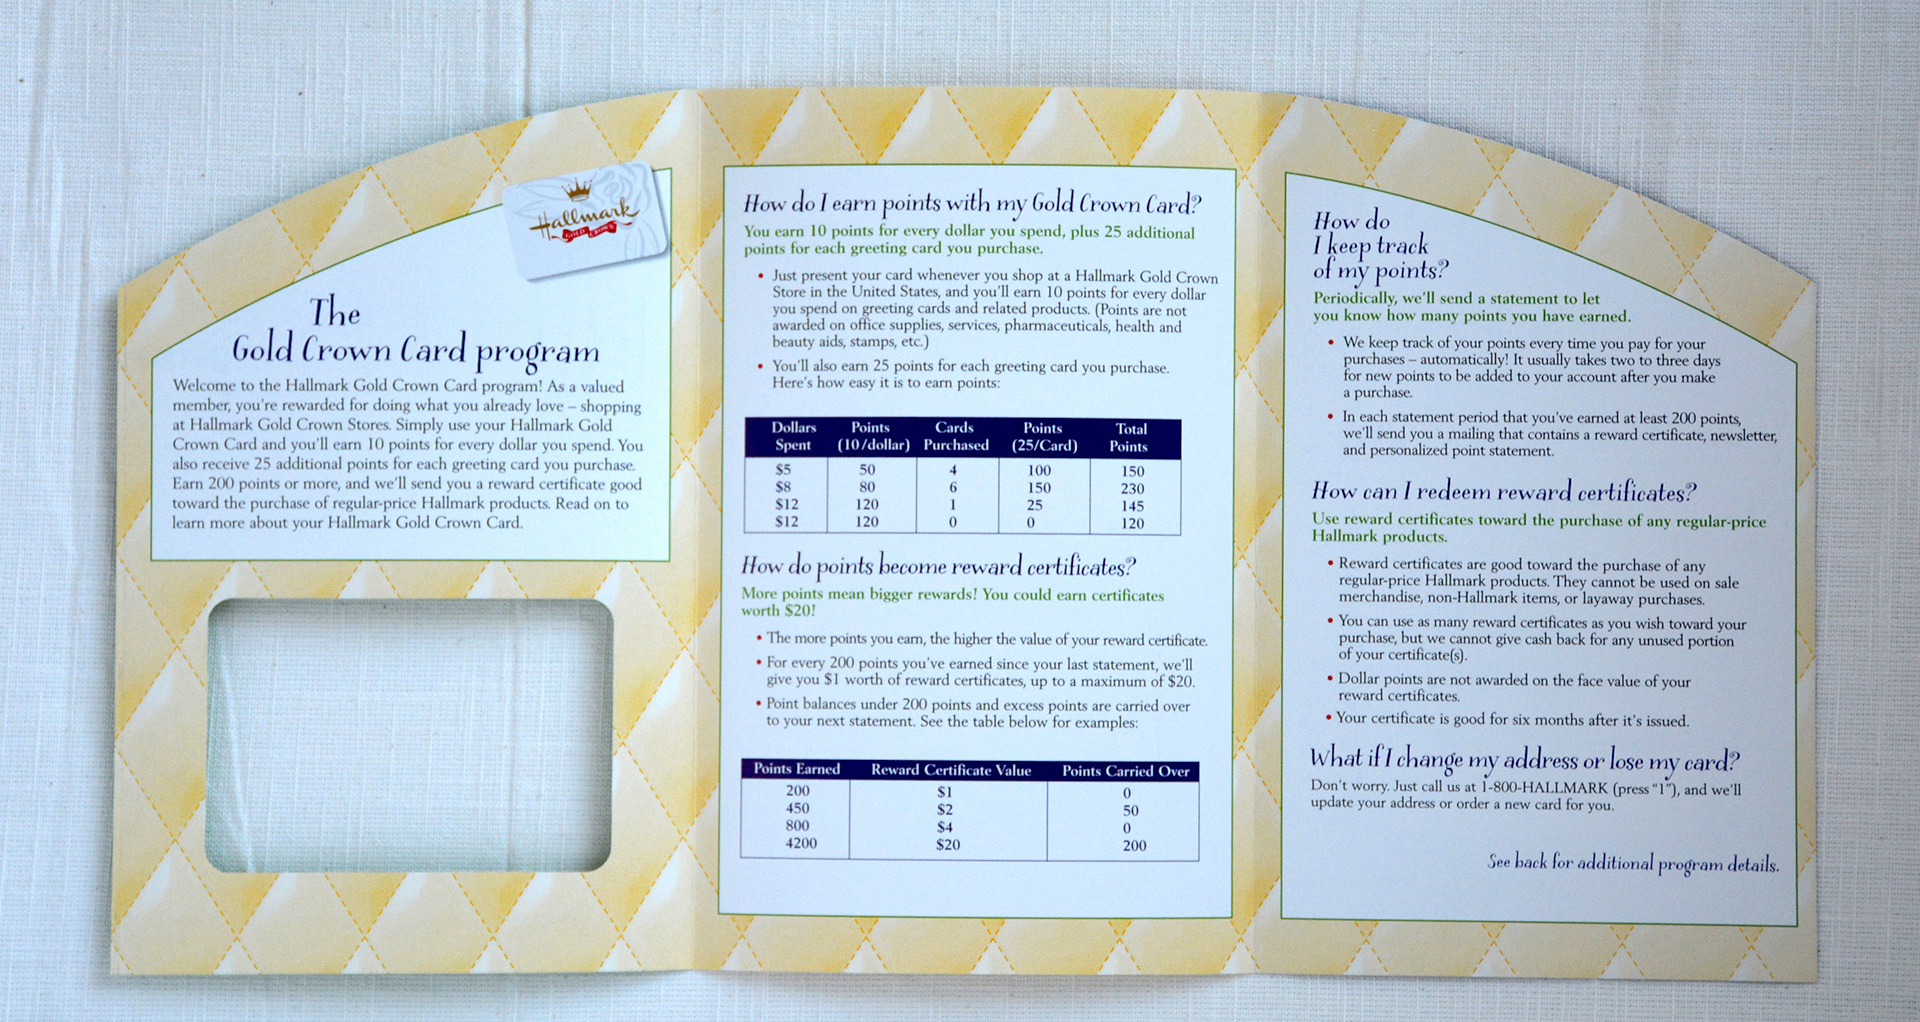 Hallmark
GOLD CROWN
The
Gold Crown Card program
Welcome to the Hallmark Gold Crown Card program! As a valued
member, you're rewarded for doing what you already love – shopping
at Hallmark Gold Crown Stores. Simply use your Hallmark Gold
Crown Card and you'll earn 10 points for every dollar you spend. You
also receive 25 additional points for each greeting card you purchase.
Earn 200 points or more, and we'll send you a reward certificate good
toward the purchase of regular-price Hallmark products. Read on to
learn more about your Hallmark Gold Crown Card.
How do I earn points with my Gold Crown Card?
You earn 10 points for every dollar you spend, plus 25 additional
points for each greeting card you purchase.
• Just present your card whenever you shop at a Hallmark Gold Crown
Store in the United States, and you'll earn 10 points for every dollar
you spend on greeting cards and related products. (Points are not
awarded on office supplies, services, pharmaceuticals, health and
beauty aids, stamps, etc.)
• You'll also earn 25 points for each greeting card you purchase.
Here's how easy it is to earn points:
Dollars Points Cards Points Total
Spent (10/dollar) Purchased (25/Card) Points
$5 50 4 100 150
$8 80 6 150 230
$12 120 1 25 145
$12 120 0 0 120
How do points become reward certificates?
More points mean bigger rewards! You could earn certificates
worth $20!
• The more points you earn, the higher the value of your reward certificate.
• For every 200 points you've earned since your last statement, we'll
give you $1 worth of reward certificates, up to a maximum of $20.
• Point balances under 200 points and excess points are carried over
to your next statement. See the table below for examples:
Points Earned Reward Certificate Value Points Carried Over
200 $1 0
450 $2 50
800 $4 0
4200 $20 200
How do
I keep track
of my points?
Periodically, we'll send a statement to let
you know how many points you have earned.
• We keep track of your points every time you pay for your
purchases – automatically! It usually takes two to three days
for new points to be added to your account after you make
a purchase.
• In each statement period that you've earned at least 200 points,
we'll send you a mailing that contains a reward certificate, newsletter,
and personalized point statement.
How can I redeem reward certificates?
Use reward certificates toward the purchase of any regular-price
Hallmark products.
• Reward certificates are good toward the purchase of any
regular-price Hallmark products. They cannot be used on sale
merchandise, non-Hallmark items, or layaway purchases.
• You can use as many reward certificates as you wish toward your
purchase, but we cannot give cash back for any unused portion
of your certificate(s).
• Dollar points are not awarded on the face value of your
reward certificates.
• Your certificate is good for six months after it's issued.
What if I change my address or lose my card?
Don't worry. Just call us at 1-800-HALLMARK (press "1"), and we'll
update your address or order a new card for you.
See back for additional program details.